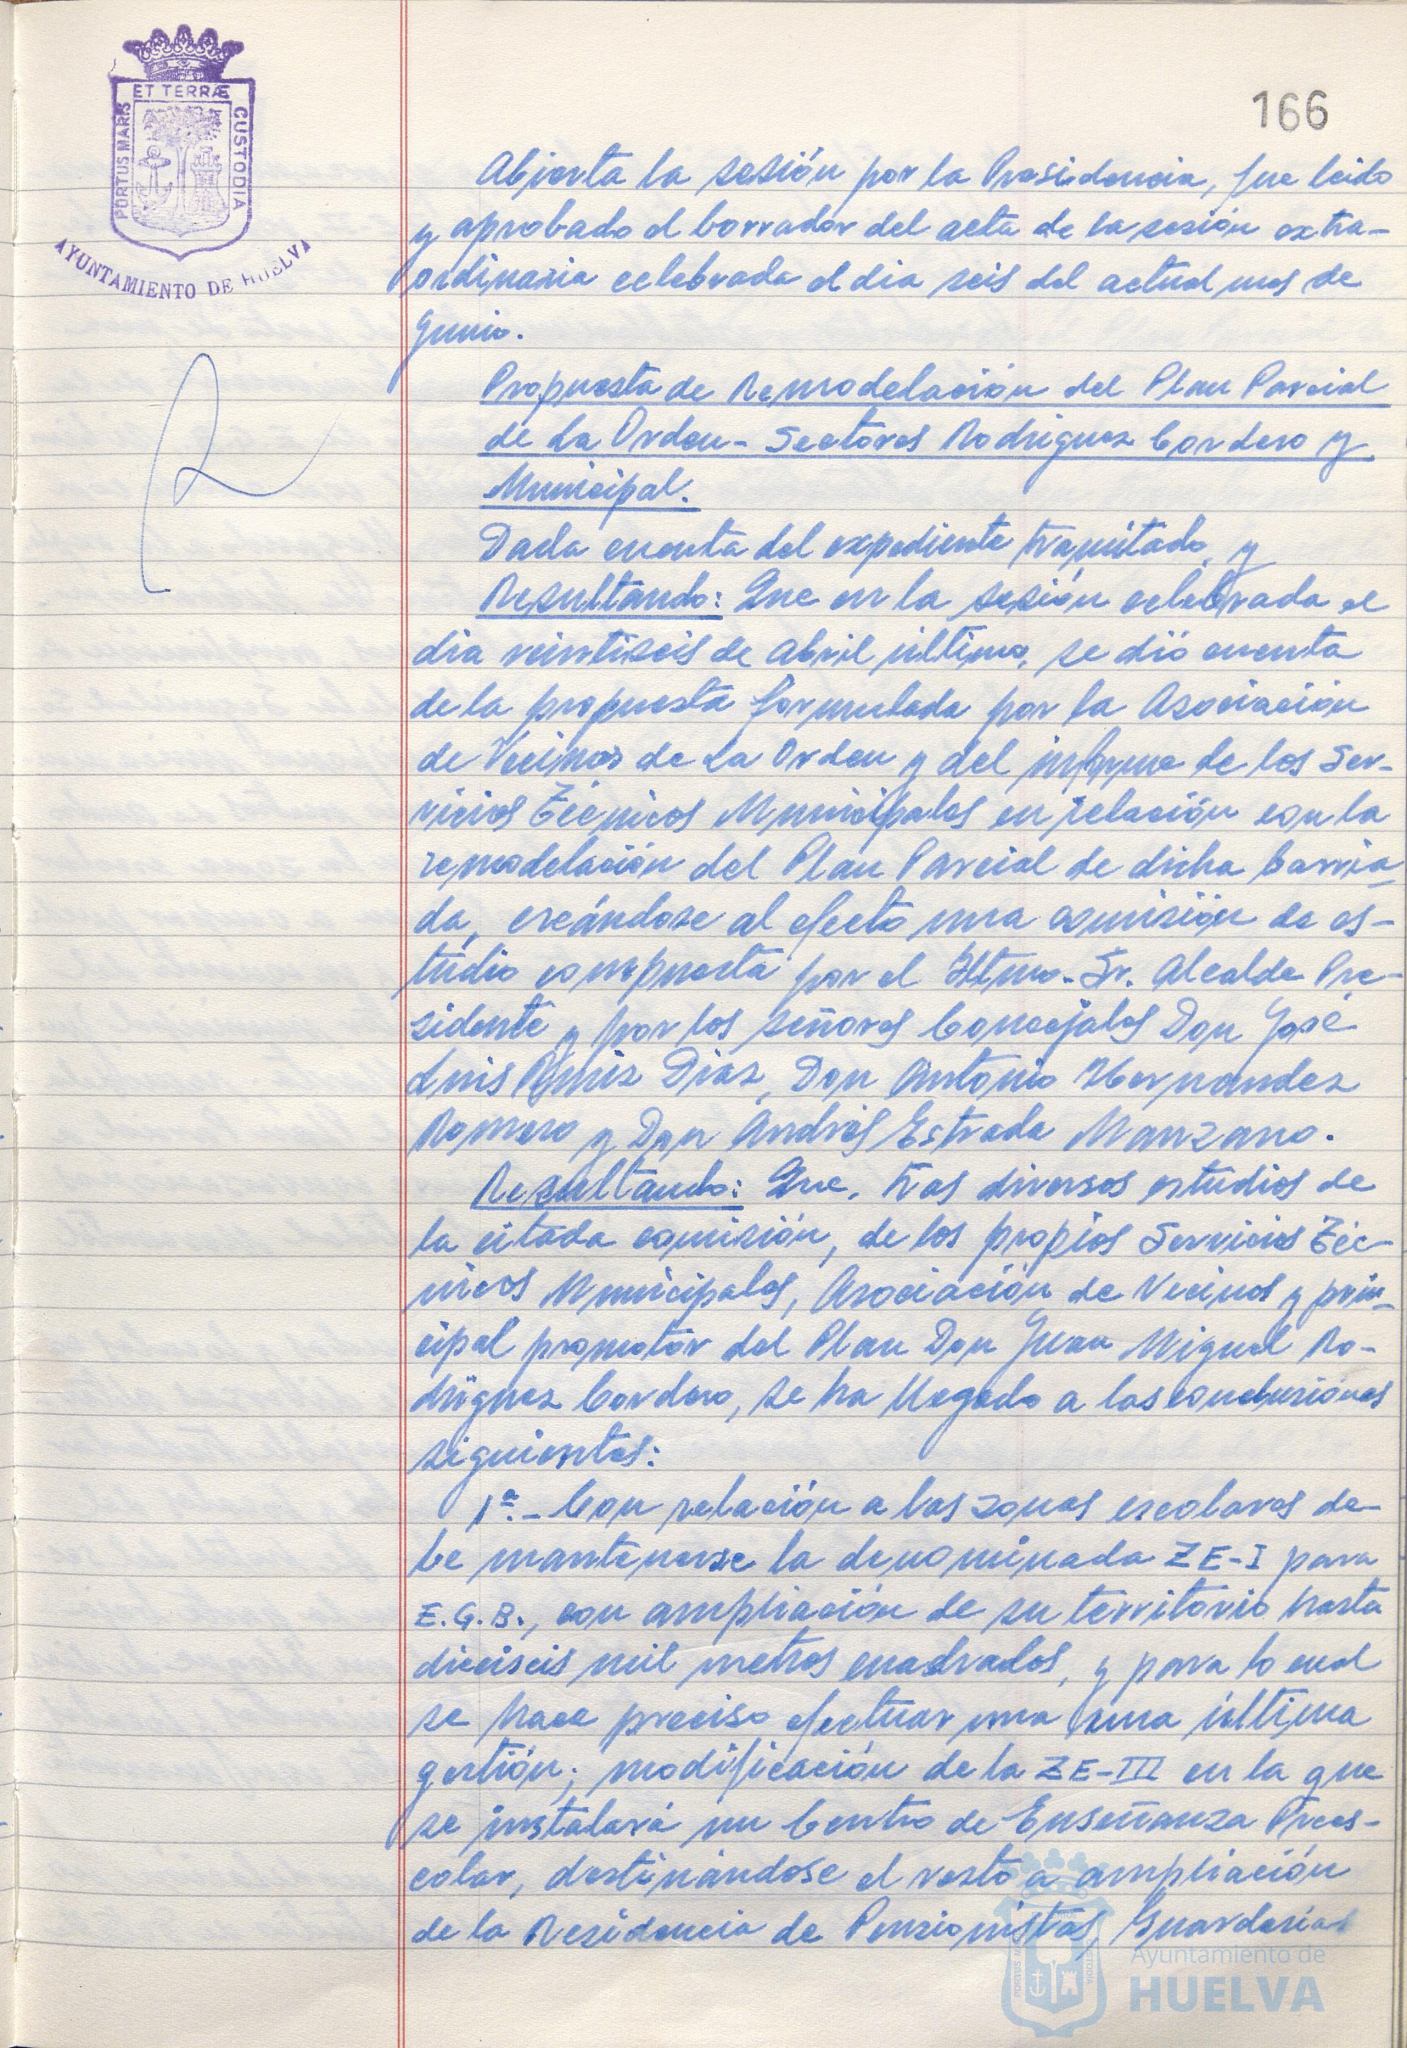 ET TERRÆ
PORTUS MARIS
CUSTODIA
AYUNTAMIENTO DE HUELVA
166
Abierta la sesión por la Presidencia, fue leido
y aprobado el borrador del acta de la sesión extra-
ordinaria celebrada el dia seis del actual mes de
Junio.
Propuesta de Remodelación del Plan Parcial
de La Orden - Sectores Rodriguez Cordero y
Municipal.
Dada cuenta del expediente tramitado, y
Resultando: Que en la sesión celebrada el
dia veintiseis de Abril último, se dió cuenta
de la propuesta formulada por la Asociación
de Vecinos de La Orden y del informe de los Ser-
vicios Técnicos Municipales en relación con la
remodelación del Plan Parcial de dicha barria-
da, creándose al efecto una comisión de es-
tudio compuesta por el Iltmo. Sr. Alcalde Pre-
sidente y por los señores Concejales Don José
Luis Ruiz Diaz, Don Antonio Hernandez
Romero y Don Andrés Estrada Manzano.
Resultando: Que, tras diversos estudios de
la citada comisión, de los propios Servicios Téc-
nicos Municipales, Asociación de Vecinos y prin-
cipal promotor del Plan Don Juan Miguel Ro-
driguez Cordero, se ha llegado a las conclusiones
siguientes:
1ª.- Con relación a las zonas escolares de-
be mantenerse la denominada ZE-I para
E.G.B., con ampliación de su territorio hasta
dieciseis mil metros cuadrados, y para lo cual
se hace preciso efectuar una última
gestión; modificación de la ZE-III en la que
se instalará un Centro de Enseñanza Prees-
colar, destinándose el resto a ampliación
de la Residencia de Pensionistas, Guarderias
Ayuntamiento de
HUELVA